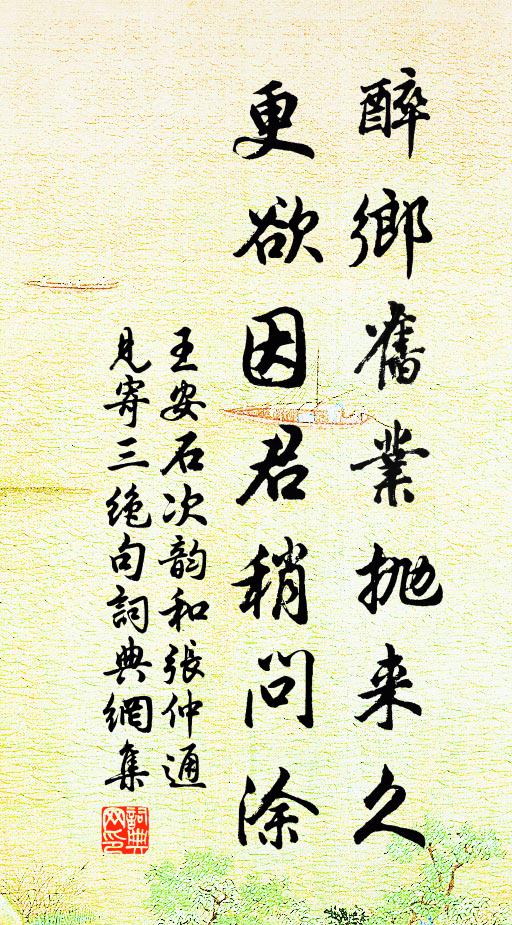 醉鄉舊業拋来久
更欲因君稍問涂
王安石次韵和張仲通
見寄三絶句詞典網集
詞典
网印